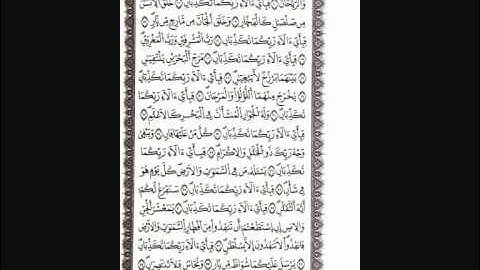 وَالرَّيْحَانُ ۝ فَبِأَيِّ ءَالَاءِ رَبِّكُمَا تُكَذِّبَانِ ۝ خَلَقَ الْإِنسَٰنَ
مِن صَلْصَٰلٍ كَالْفَخَّارِ ۝ وَخَلَقَ الْجَانَّ مِن مَّارِجٍ مِّن نَّارٍ ۝
فَبِأَيِّ ءَالَاءِ رَبِّكُمَا تُكَذِّبَانِ ۝ رَبُّ الْمَشْرِقَيْنِ وَرَبُّ الْمَغْرِبَيْنِ ۝
فَبِأَيِّ ءَالَاءِ رَبِّكُمَا تُكَذِّبَانِ ۝ مَرَجَ الْبَحْرَيْنِ يَلْتَقِيَانِ ۝
بَيْنَهُمَا بَرْزَخٌ لَّا يَبْغِيَانِ ۝ فَبِأَيِّ ءَالَاءِ رَبِّكُمَا تُكَذِّبَانِ ۝
يَخْرُجُ مِنْهُمَا اللُّؤْلُؤُ وَالْمَرْجَانُ ۝ فَبِأَيِّ ءَالَاءِ رَبِّكُمَا
تُكَذِّبَانِ ۝ وَلَهُ الْجَوَارِ الْمُنشَـَٔاتُ فِي الْبَحْرِ كَالْأَعْلَٰمِ ۝
فَبِأَيِّ ءَالَاءِ رَبِّكُمَا تُكَذِّبَانِ ۝ كُلُّ مَنْ عَلَيْهَا فَانٍ ۝ وَيَبْقَىٰ
وَجْهُ رَبِّكَ ذُو الْجَلَٰلِ وَالْإِكْرَامِ ۝ فَبِأَيِّ ءَالَاءِ رَبِّكُمَا
تُكَذِّبَانِ ۝ يَسْـَٔلُهُ مَن فِي السَّمَٰوَٰتِ وَالْأَرْضِ كُلَّ يَوْمٍ هُوَ
فِي شَأْنٍ ۝ فَبِأَيِّ ءَالَاءِ رَبِّكُمَا تُكَذِّبَانِ ۝ سَنَفْرُغُ لَكُمْ
أَيُّهَ الثَّقَلَانِ ۝ فَبِأَيِّ ءَالَاءِ رَبِّكُمَا تُكَذِّبَانِ ۝ يَٰمَعْشَرَ الْجِنِّ
وَالْإِنسِ إِنِ اسْتَطَعْتُمْ أَن تَنفُذُوا مِنْ أَقْطَارِ السَّمَٰوَٰتِ وَالْأَرْضِ
فَانفُذُوا لَا تَنفُذُونَ إِلَّا بِسُلْطَٰنٍ ۝ فَبِأَيِّ ءَالَاءِ رَبِّكُمَا تُكَذِّبَانِ ۝
يُرْسَلُ عَلَيْكُمَا شُوَاظٌ مِّن نَّارٍ وَنُحَاسٌ فَلَا تَنتَصِرَانِ ۝